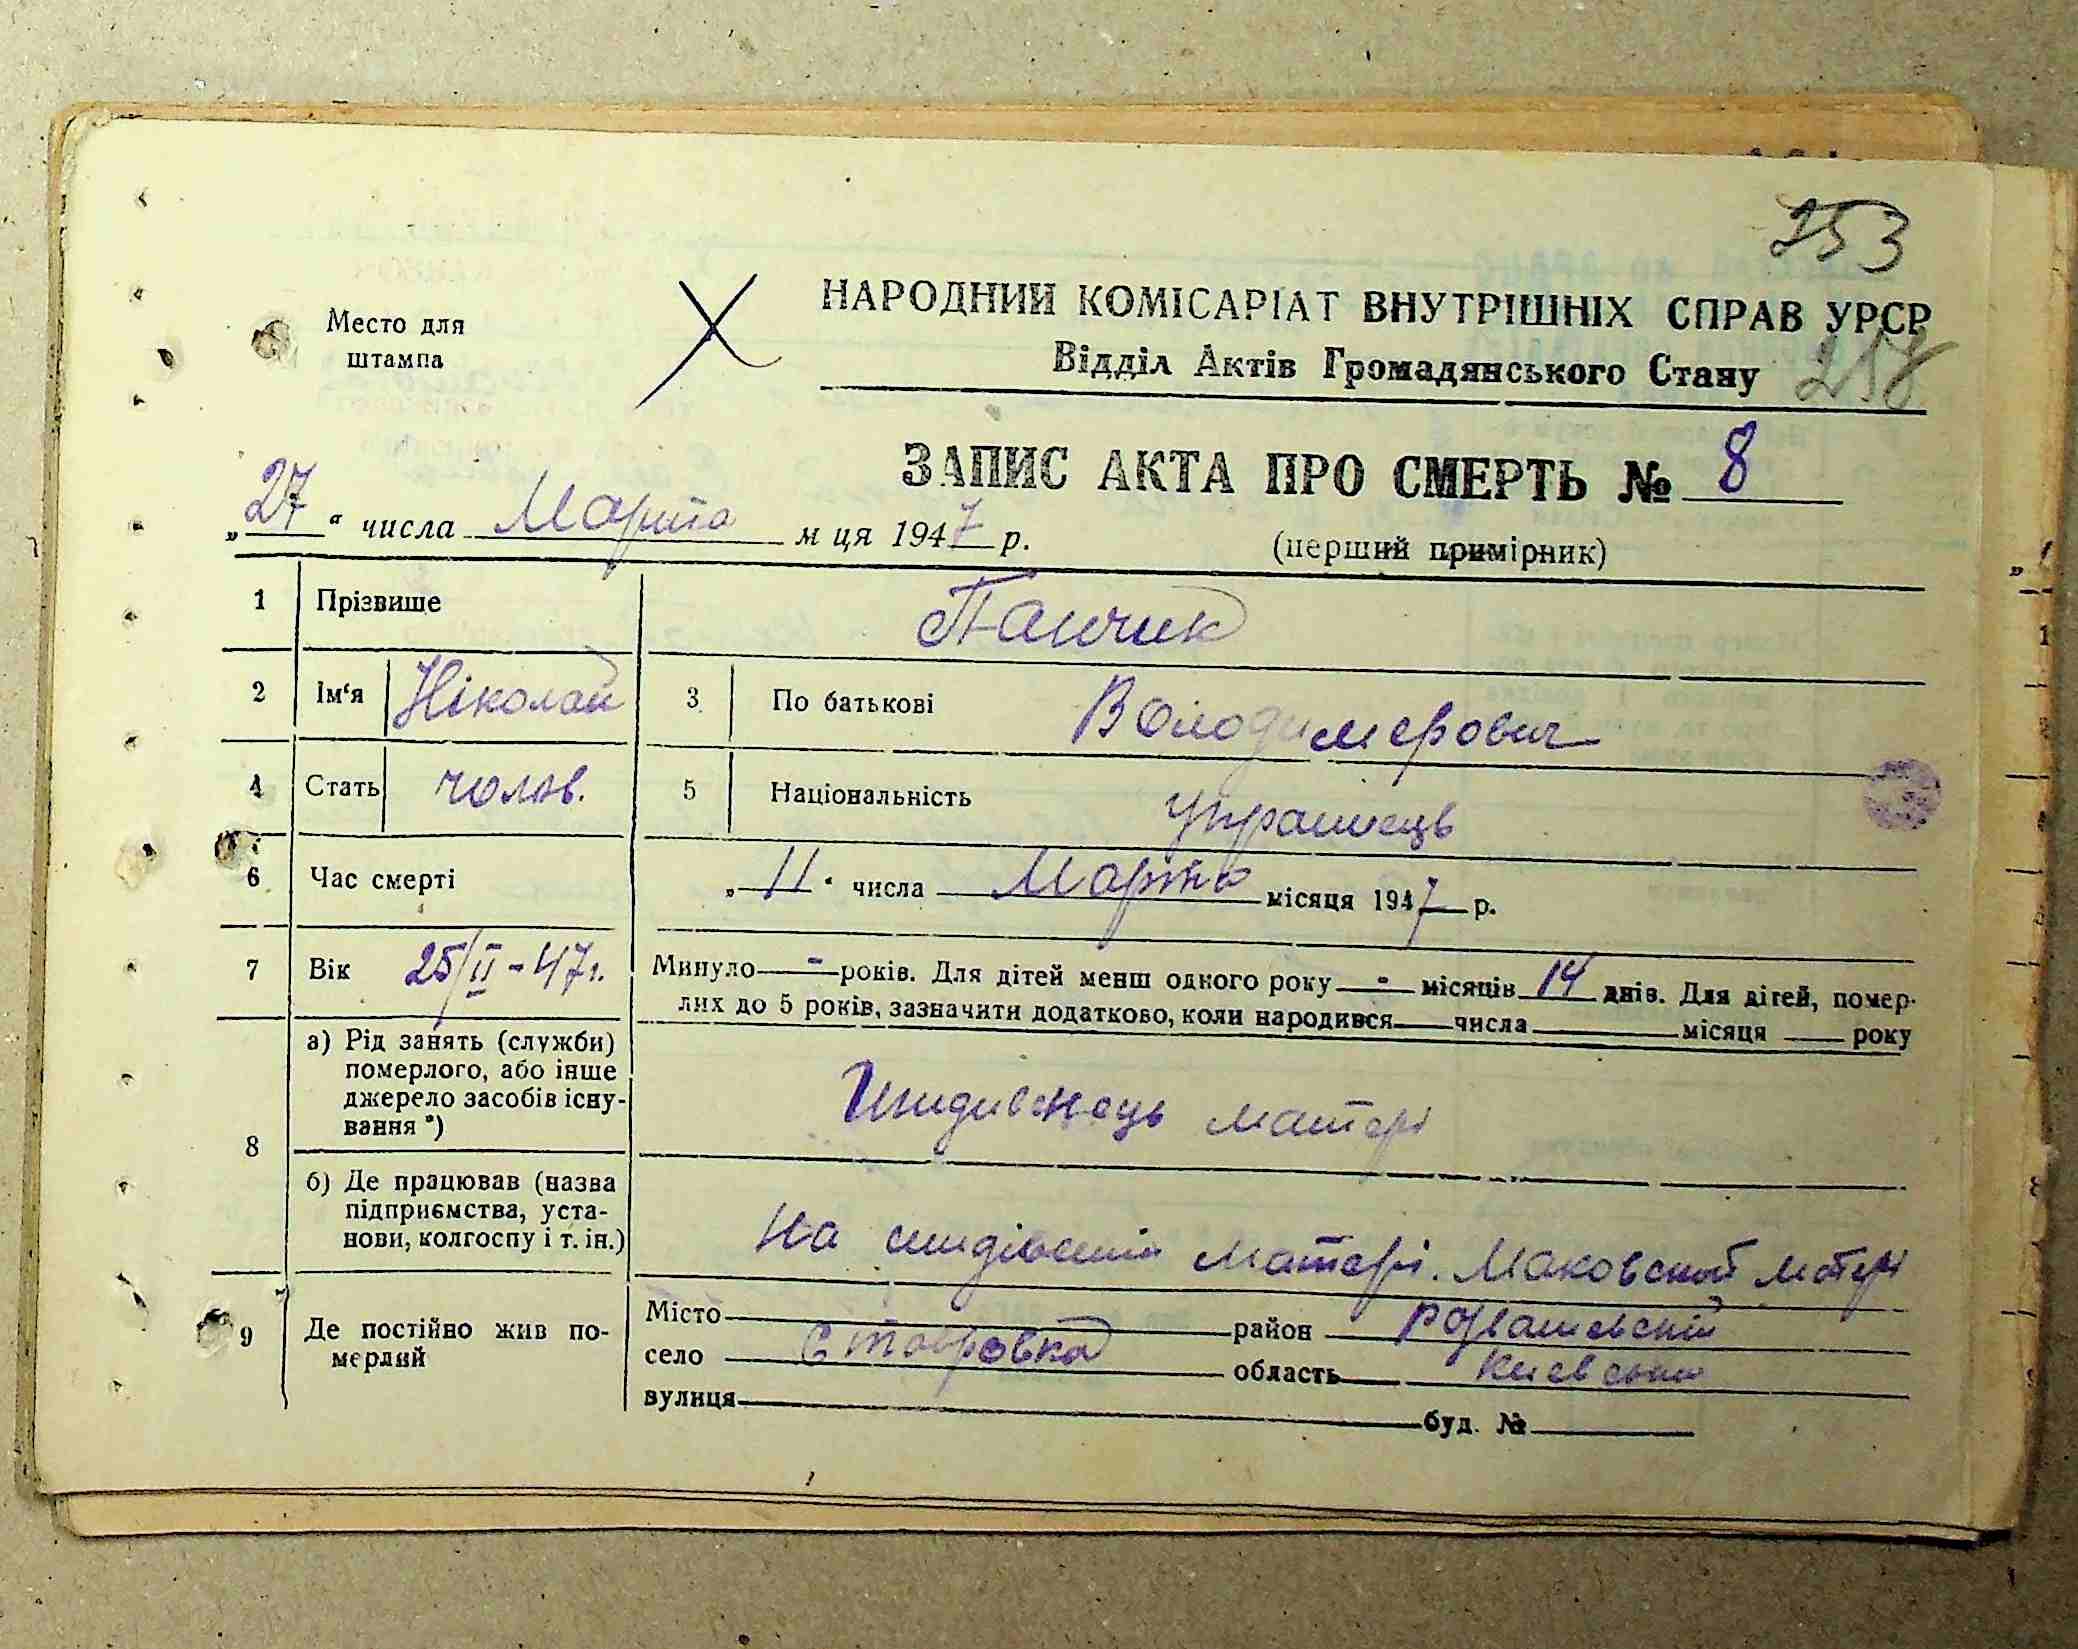 253
Место для
штампа
НАРОДНИЙ КОМІСАРІАТ ВНУТРІШНІХ СПРАВ УРСР
Відділ Актів Громадянського Стану
258
ЗАПИС АКТА ПРО СМЕРТЬ № 8
„27“ числа Марта м ця 1947 р.
(перший примірник)
1 Прізвище Панчик
2 Ім‘я Ніколай 3 По батькові Володимерович
4 Стать чолов. 5 Національність українець
6 Час смерті „11“ числа Марта місяця 1947 р.
7 Вік 25/II-47г. Минуло - років. Для дітей менш одного року - місяців 14 днів. Для дітей, помер-
лих до 5 років, зазначити додатково, коли народився числа місяця року
8
а) Рід занять (службн)
померлого, або інше
джерело засобів існу-
вання *)
матері
б) Де працював (назва
підприємства, уста-
нови, колгоспу і т. ін.)
На матері. Маковской
9 Де постійно жив по-
мерлий
Місто район
село Ставровка область Киевська
вулиця буд. №